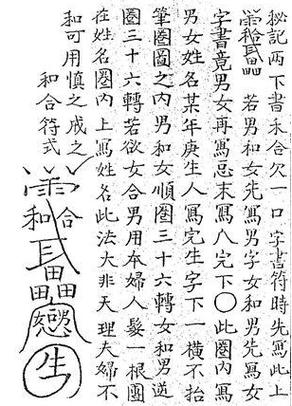 秘記两下書禾合欠一口字書符時先寫此上
若男和女先寫男字女和男先寫女
字書竟男女再寫忌末寫八完下〇此圈內寫
男女姓名某年庚生人寫完生字下一橫不抬
筆圈圖之內男和女順圈三十六轉女和男逆
圈三十六轉若欲女合男用本婦人髮一根圍
在姓名圈內上寫姓名此法大非天理夫婦不
和可用慎之戒之
和合符式
合
和
生